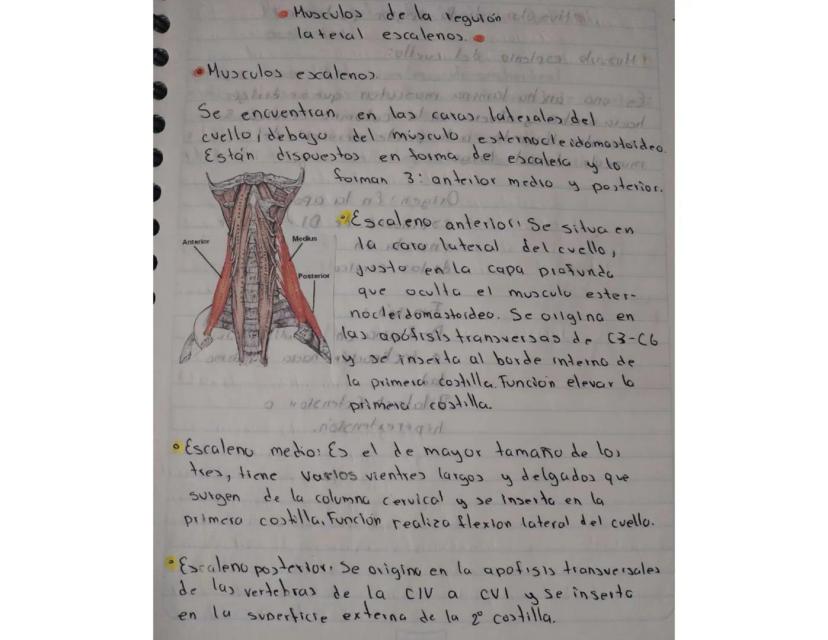 Musculos de la reguión
lateral escalenos.
Musculos escalenos
Se encuentran en las caras laterales del
cuello, debajo del músculo esternocleidomastoideo.
Están dispuestos en forma de escalera y lo
forman 3: anterior medio y posterior.
Anterior
Medius
Posterior
Escaleno anterior: Se situa en
la cara lateral del cuello,
justo en la capa profunda
que oculta el musculo ester-
nocleidomastoideo. Se origina en
las apófisis transversas de C3-C6
y se inserta al borde interno de
la primera costilla. Función elevar la
primera costilla.
Escaleno medio: Es el de mayor tamaño de los
tres, tiene varios vientres largos y delgados que
surgen de la columna cervical y se inserta en la
primera costilla. Función realiza flexion lateral del cuello.
Escaleno posterior: Se origina en la apofisis transversales
de las vertebras de la CIV a CVI y se inserta
en la superficie externa de la 2° costilla.